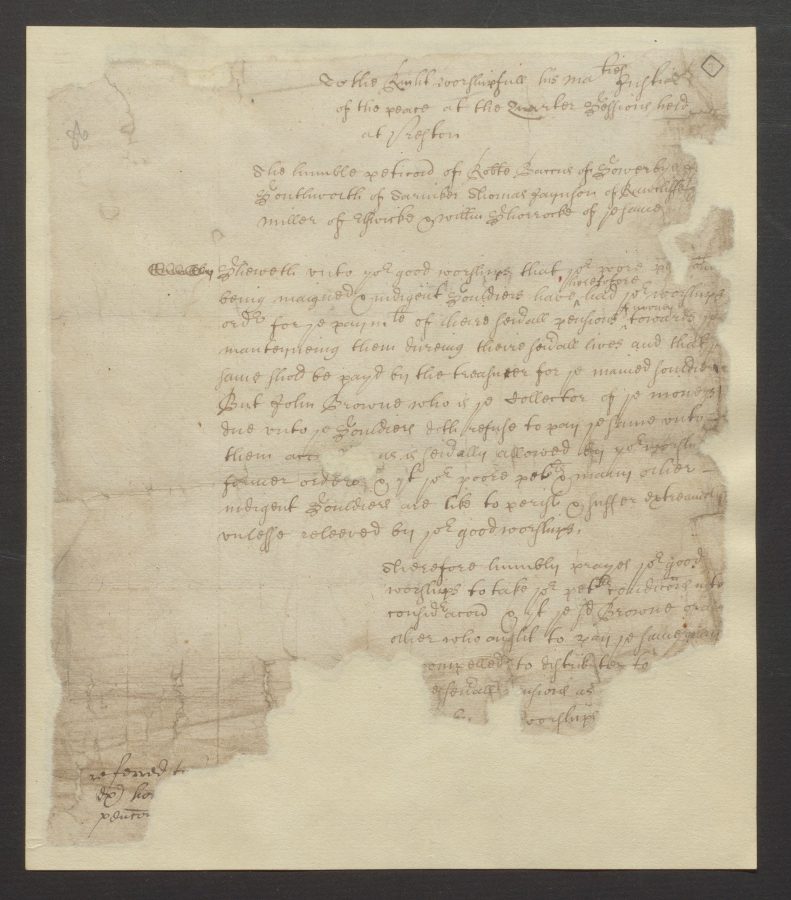 To the Right worshipfull his Ma ties Justices
of the peace at the Quarter Sessions held
at Preston
The humble peticon of Robte Baccus of Sowerbye
Southworth of Thomas Jamson of
Miller of Elswicke & Willm Shorrocke of ye same
Sheweth vnto yor good worships that yor poore
heretofore
being maigned & indigent Souldiers have had yor worships
ordr for ye paymte of theire seuall pensions towards
manteyneing them dureing theire seuall lives and that
same shold be payd by the treasurer for ye maimed souldiers
But John Browne who is ye Collector of ye moneys
due vnto ye Souldiers doth refuse to pay ye same vnto
them as is seually allowed by yor worshi
former orders & yt yor poore petrs & many other
indigent Souldiers are like to perish & suffer extreamely
vnlesse releeved by yor good worships.
Therefore humbly prayes yor good
worships to take yor petrs condicons into
considracon & yt ye sd Browne or
other who ought to pay ye same may
ompelled to distribute to
seuall nsions as
worships
referred to